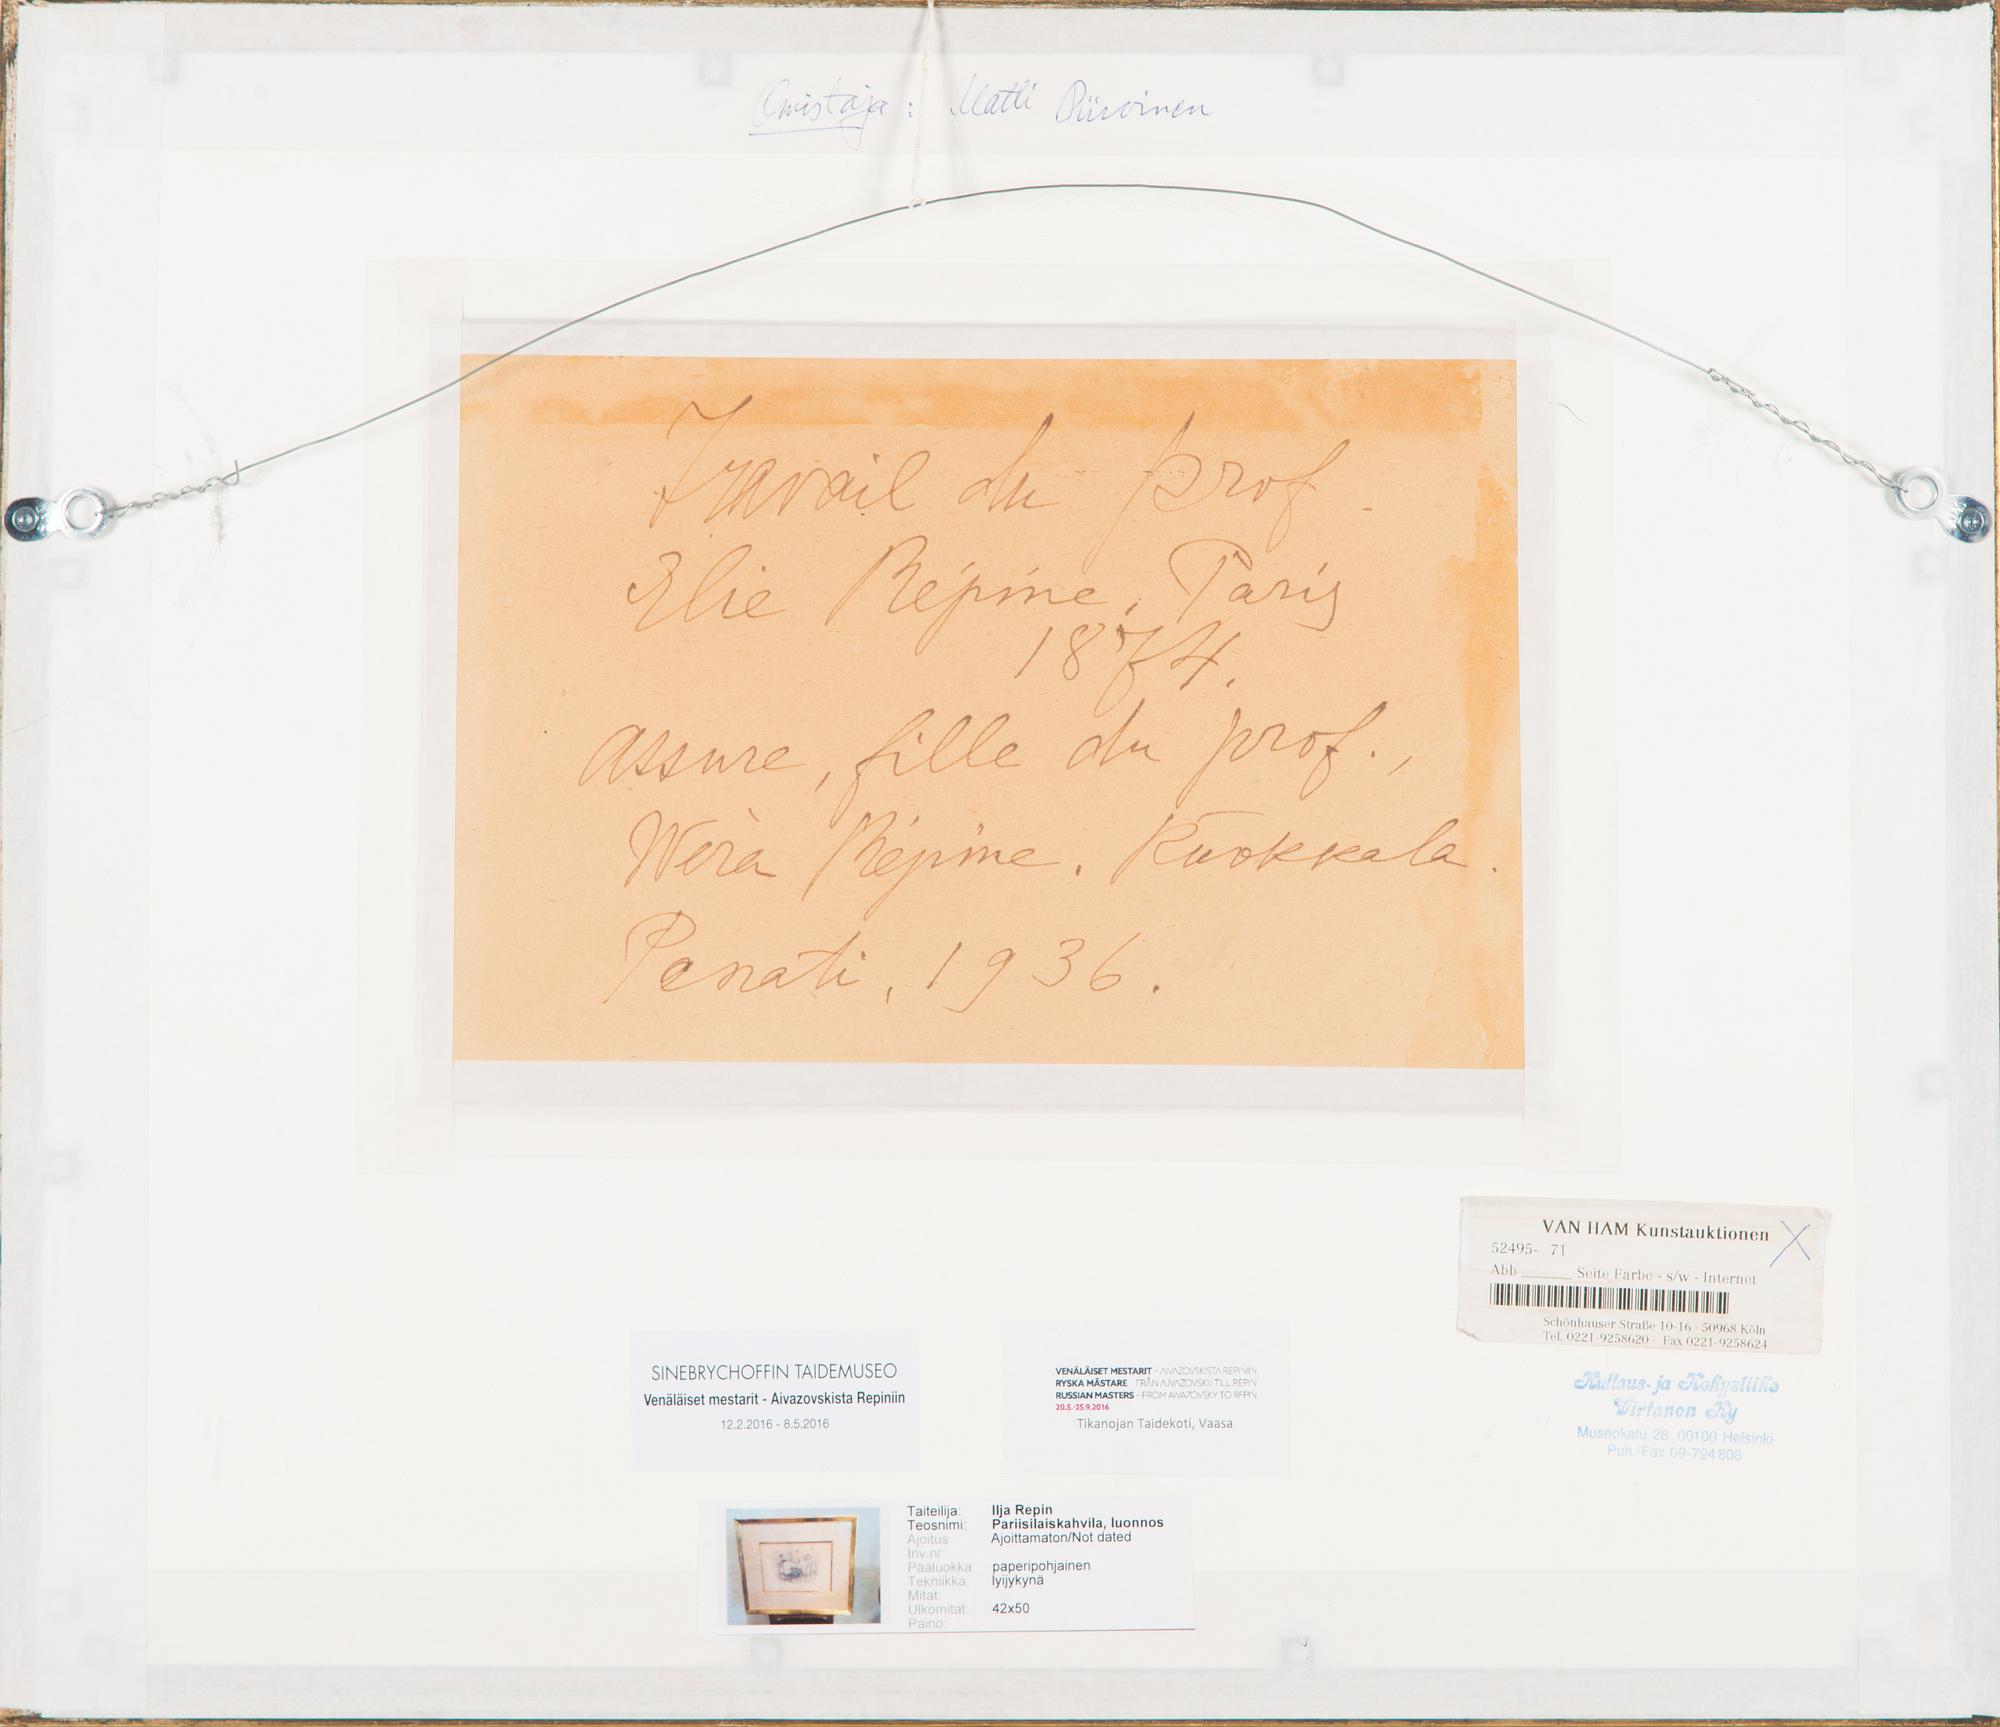 Omistaja : Matti Piiroinen
Travail du prof.
Elie Répine, Paris
1874.
assure, fille du prof.,
Wèra Répine. Kuokkala.
Penati, 1936.
VAN HAM Kunstauktionen X
52495- 71
Abb ______ Seite Farbe - s/w - Internet
Schönhauser Straße 10-16 · 50968 Köln
Tel. 0221-9258620 · Fax 0221-9258624
SINEBRYCHOFFIN TAIDEMUSEO
Venäläiset mestarit - Aivazovskista Repiniin
12.2.2016 - 8.5.2016
VENÄLÄISET MESTARIT – AIVAZOVSKISTA REPINIIN
RYSKA MÄSTARE – FRÅN AJVAZOVSKIJ TILL REPIN
RUSSIAN MASTERS – FROM AIVAZOVSKY TO REPIN
20.5.-25.9.2016
Tikanojan Taidekoti, Vaasa
Kultaus- ja Kehysliike
Virtanen Ky
Museokatu 28, 00100 Helsinki
Puh./Fax 09-794 808
Taiteilija: Ilja Repin
Teosnimi: Pariisilaiskahvila, luonnos
Ajoitus: Ajoittamaton/Not dated
Inv.nr:
Pääluokka: paperipohjainen
Tekniikka: lyijykynä
Mitat:
Ulkomitat: 42x50
Paino: